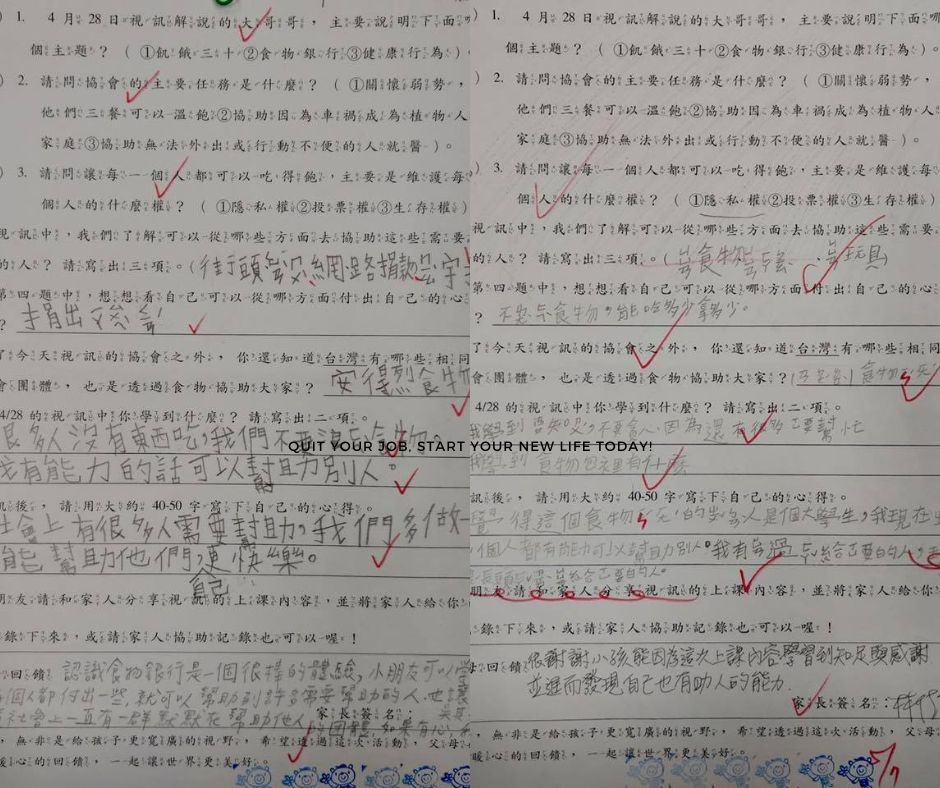 1. 4月28日視訊解說的大哥哥，主要說明下面
個主題？（①飢餓三十②食物銀行③健康行為）
2. 請問協會的主要任務是什麼？（①關懷弱勢，
他們三餐可以溫飽②協助因為車禍成為植物人
家庭③協助無法外出或行動不便的人就醫）。
3. 請問讓每一個人都可以吃得飽，主要是維護每
個人的什麼權？（①隱私權②投票權③生存權）
視訊中，我們了解可以從哪些方面去協助這些需要
的人？請寫出三項。（街頭發 網路捐款
第四題中，想想看自己可以從哪方面付出自己的心
？ 捐出發票
了今天視訊的協會之外，你還知道台灣有哪些相同
會團體，也是透過食物協助大家？ 安得烈食物
4/28的視訊中你學到什麼？請寫出二項。
很多人沒有東西吃，我們不要浪 食物。
我有能力的話可以幫助別人。
訊後，請用大約40-50字寫下自己的心得。
社會上有很多人需要幫助，我們多做一
能幫助他們，自己更快樂。
朋友請和家人分享視訊的上課內容，並將家人給你
錄下來，或請家人協助記錄也可以喔！
回饋 認識食物銀行是一個很棒的體驗，小朋友可以學
個人都付出一些，就可以幫助到許多需要幫助的人。也讓
社會上一直有一群默默在幫助他人 團體，如果有心，
家長簽名
，無非是給孩子更寬廣的視野，希望透過這次活動，父母
暖心的回饋，一起讓世界更美好。
1. 4月28日視訊解說的大哥哥，主要說明下面哪
個主題？（①飢餓三十②食物銀行③健康行為）。
2. 請問協會的主要任務是什麼？（①關懷弱勢，
他們三餐可以溫飽②協助因為車禍成為植物人
家庭③協助無法外出或行動不便的人就醫）。
3. 請問讓每一個人都可以吃得飽，主要是維護每
個人的什麼權？（①隱私權②投票權③生存權）
視訊中，我們了解可以從哪些方面去協助這些需要
的人？請寫出三項。（ 食物 、 玩具
第四題中，想想看自己可以從哪方面付出自己的心
？ 不 食物，能吃多少拿多少。
了今天視訊的協會之外，你還知道台灣有哪些相同
會團體，也是透過食物協助大家？
4/28的視訊中你學到什麼？請寫出二項。
我學到 知足，不要貪心，因為還有很多人要幫忙
我學到食物包裡有什麼
訊後，請用大約40-50字寫下自己的心得。
覺得這個食物 的 人是個大學生，我現在
個人都有能力可以幫助別人。我有 給 要的人，
朋友請和家人分享視訊的上課內容，並將家人給你
錄下來，或請家人協助記錄也可以喔！
回饋 很謝謝小孩能因為這次上課內容學習到知足與感謝
並進而發現自己也有助人的能力.
家長簽名：林
，無非是給孩子更寬廣的視野，希望透過這次活動，父母
暖心的回饋，一起讓世界更美好。
5/7
QUIT YOUR JOB, START YOUR NEW LIFE TODAY!